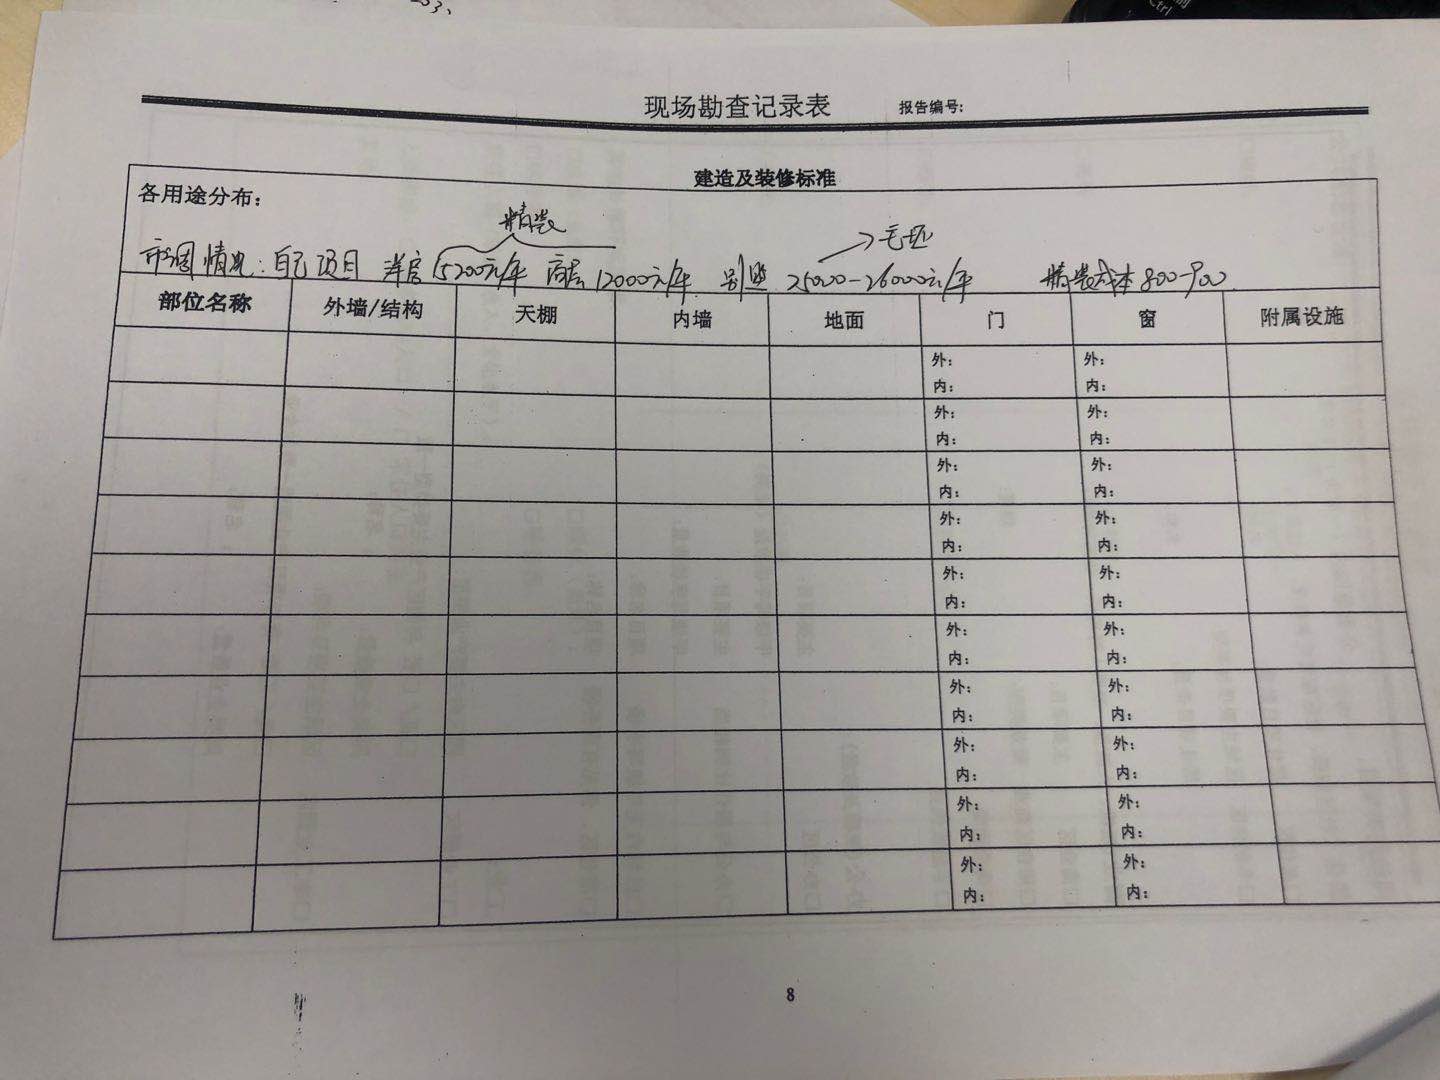 253、
Ctrl
现场勘查记录表 报告编号:
建造及装修标准
各用途分布:
精装
→毛坯
市调情况:自己项目 洋房15200元/平 高层12000元/平 别墅 25000-26000元/平 精装成本800-900
部位名称 外墙/结构 天棚 内墙 地面 门 窗 附属设施
外: 外:
内: 内:
外: 外:
内: 内:
外: 外:
内: 内:
外: 外:
内: 内:
外: 外:
内: 内:
外: 外:
内: 内:
外: 外:
内: 内:
外: 外:
内: 内:
外: 外:
内: 内:
外: 外:
内: 内:
8